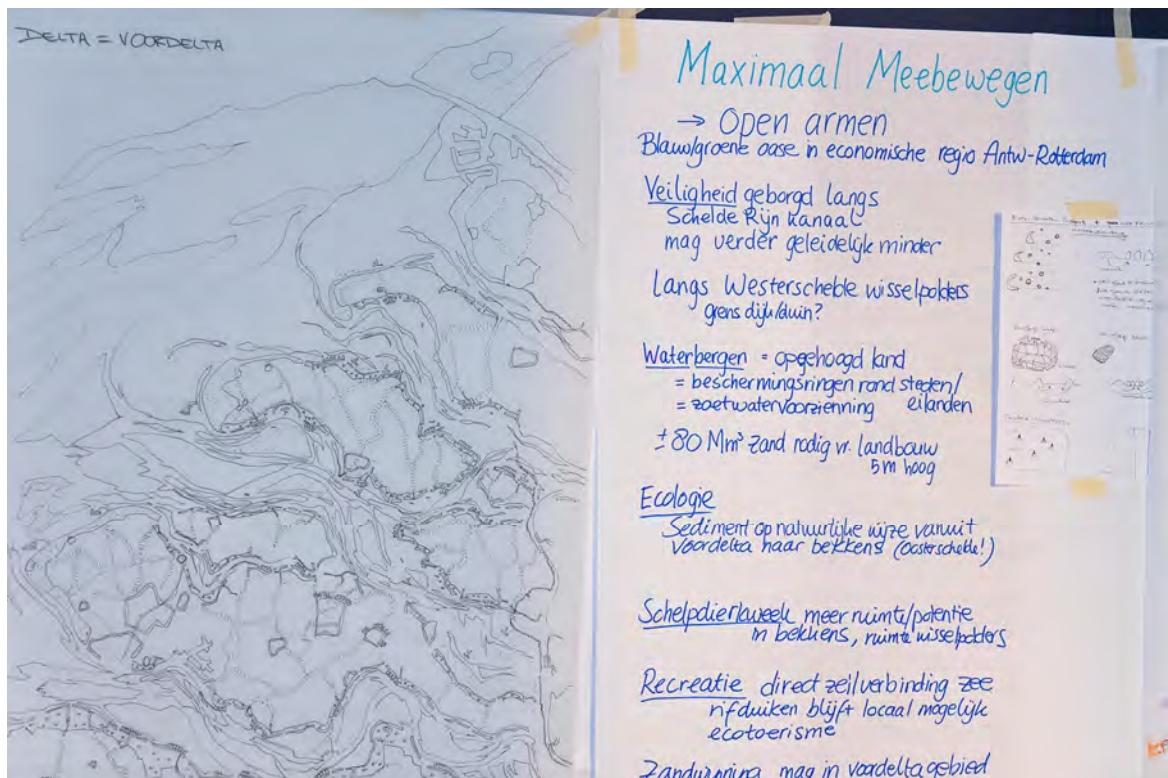 DELTA = VOORDELTA
Maximaal Meebewegen
→ Open armen
Blauw/groene oase in economische regio Antw-Rotterdam
Veiligheid geborgd langs
Schelde Rijn kanaal
mag verder geleidelijk minder
Langs Westerschelde wisselpolders
grens dijk/duin?
Waterbergen = opgehoogd land
= beschermingsringen rond steden/
eilanden
= zoetwatervoorzienning
± 80 Mm³ zand nodig vr. landbouw
5m hoog
Ecologie
Sediment op natuurlijke wijze vanuit
voordelta naar bekkens (oosterschelde!)
Schelpdierkweek meer ruimte/potentie
in bekkens, ruimte wisselpolders
Recreatie direct zeilverbinding zee
rifduiken blijft locaal mogelijk
ecotoerisme
Zandwinning mag in voordelta gebied